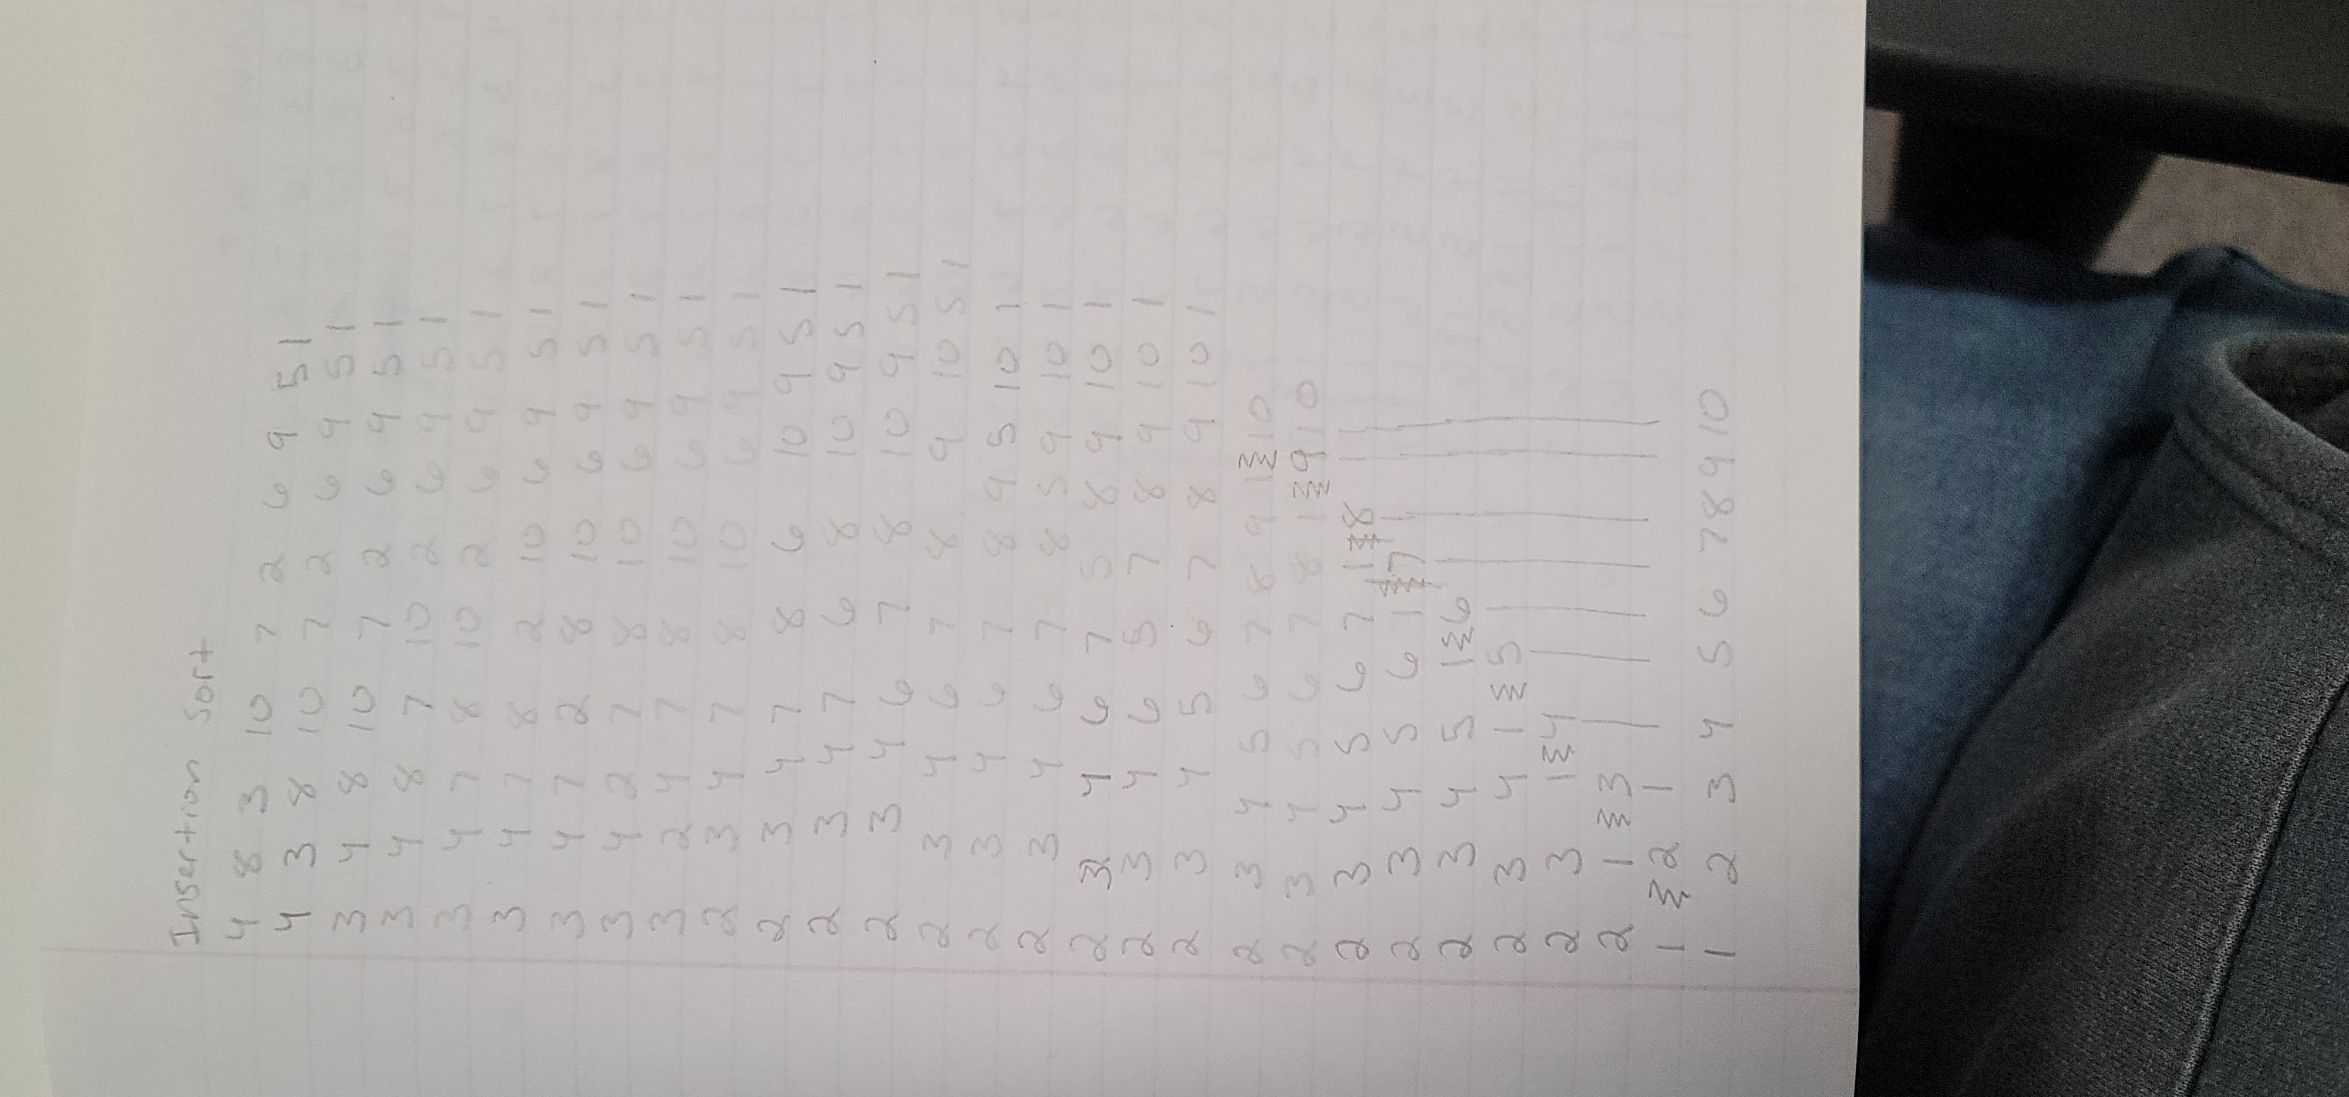 Insertion Sort
4 8 3 10 7 2 6 9 5 1
4 3 8 10 7 2 6 9 5 1
3 4 8 10 7 2 6 9 5 1
3 4 8 7 10 2 6 9 5 1
3 4 7 8 10 2 6 9 5 1
3 4 7 8 2 10 6 9 5 1
3 4 7 2 8 10 6 9 5 1
3 4 2 7 8 10 6 9 5 1
3 2 4 7 8 10 6 9 5 1
2 3 4 7 8 10 6 9 5 1
2 3 4 7 8 6 10 9 5 1
2 3 4 7 6 8 10 9 5 1
2 3 4 6 7 8 10 9 5 1
2 3 4 6 7 8 9 10 5 1
2 3 4 6 7 8 9 5 10 1
2 3 4 6 7 8 5 9 10 1
2 3 4 6 7 5 8 9 10 1
2 3 4 6 5 7 8 9 10 1
2 3 4 5 6 7 8 9 10 1
2 3 4 5 6 7 8 9 1 10
2 3 4 5 6 7 8 1 9 10
2 3 4 5 6 7 1 8
2 3 4 5 6 1 7
2 3 4 5 1 6
2 3 4 1 5
2 3 1 4
2 1 3
1 2
1 2 3 4 5 6 7 8 9 10